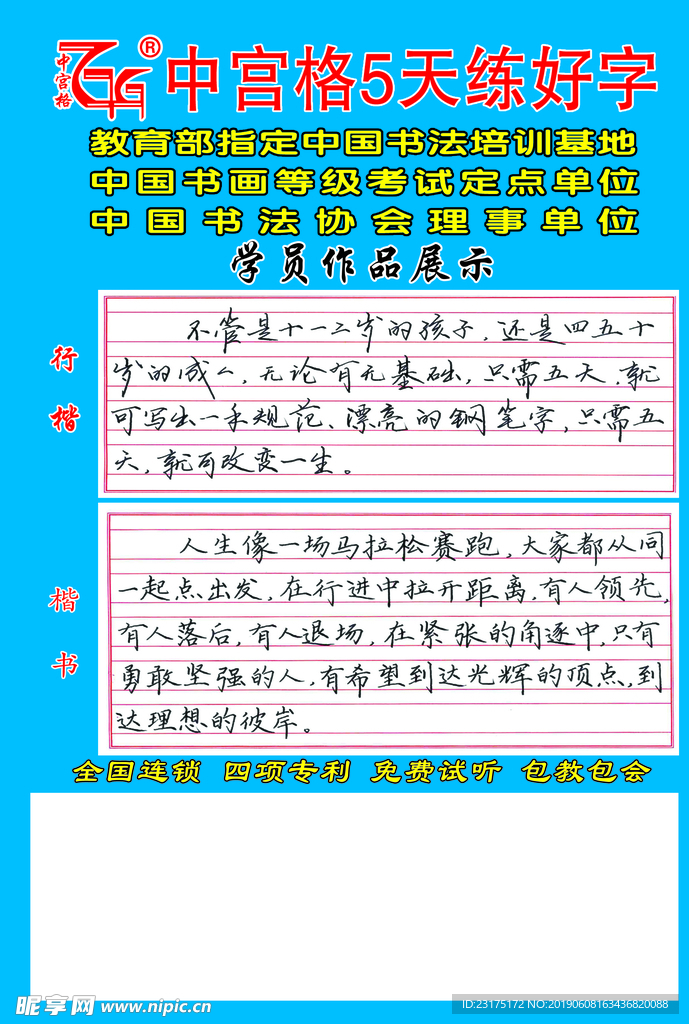 中宫格
®
中宫格5天练好字
教育部指定中国书法培训基地
中国书画等级考试定点单位
中国书法协会理事单位
学员作品展示
行楷
不管是十一二岁的孩子，还是四五十
岁的成人，无论有无基础，只需五天，就
可写出一手规范、漂亮的钢笔字，只需五
天，就可改变一生。
楷书
人生像一场马拉松赛跑，大家都从同
一起点出发，在行进中拉开距离，有人领先，
有人落后，有人退场，在紧张的角逐中，只有
勇敢坚强的人，有希望到达光辉的顶点，到
达理想的彼岸。
全国连锁 四项专利 免费试听 包教包会
昵享网 www.nipic.cn
ID:23175172 NO:20190608163436820088